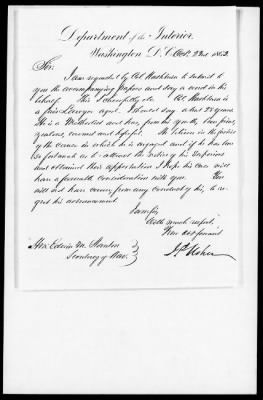 Department of the Interior.
Washington D.C. Oct. 22nd 1862.
Sir:
I am requested by Col Washburn to submit to
you the accompanying Papers and say a word in his
behalf. This I cheerfully do. Col Washburn is
a fine Lawyer aged, I should say, about 28 years.
He is a Methodist and has, from his youth, been pious,
zealous, earnest and hopeful. He believes in the justice
of the cause in which he is engaged and if he has been
so fortunate as to attract the notice of his Superiors
and obtained their approbation I hope his case will
have a favorable consideration with you. You
will not have cause from any conduct of his, to re-
gret his advancement.
I am Sir,
With much respect
Your Obt Servant
J.P. Usher
Hon. Edwin M. Stanton
Secretary of War.